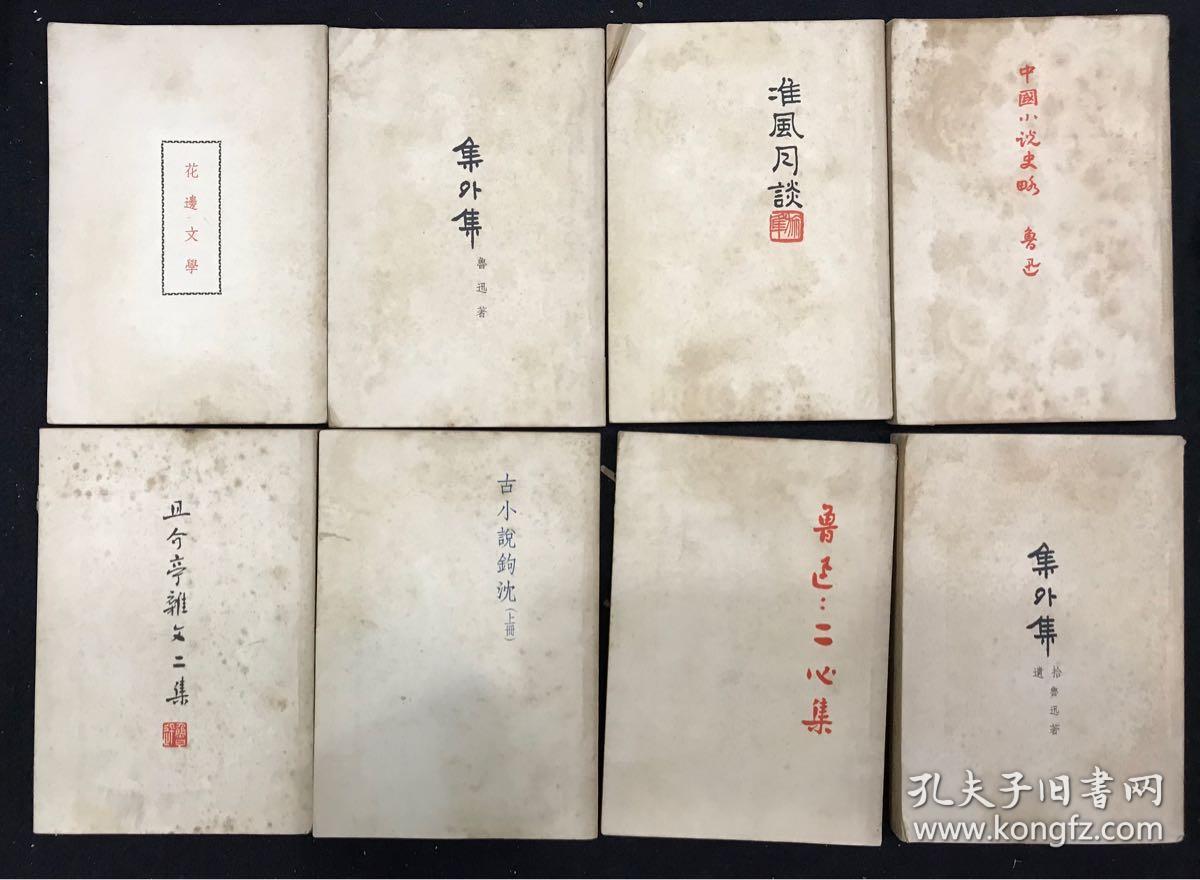 花邊文學
集外集
魯迅著
准風月談
中國小说史略 魯迅
且介亭雜文二集
古小說鉤沈(上冊)
魯迅:二心集
集外集
拾遺
魯迅著
孔夫子旧书网
www.kongfz.com